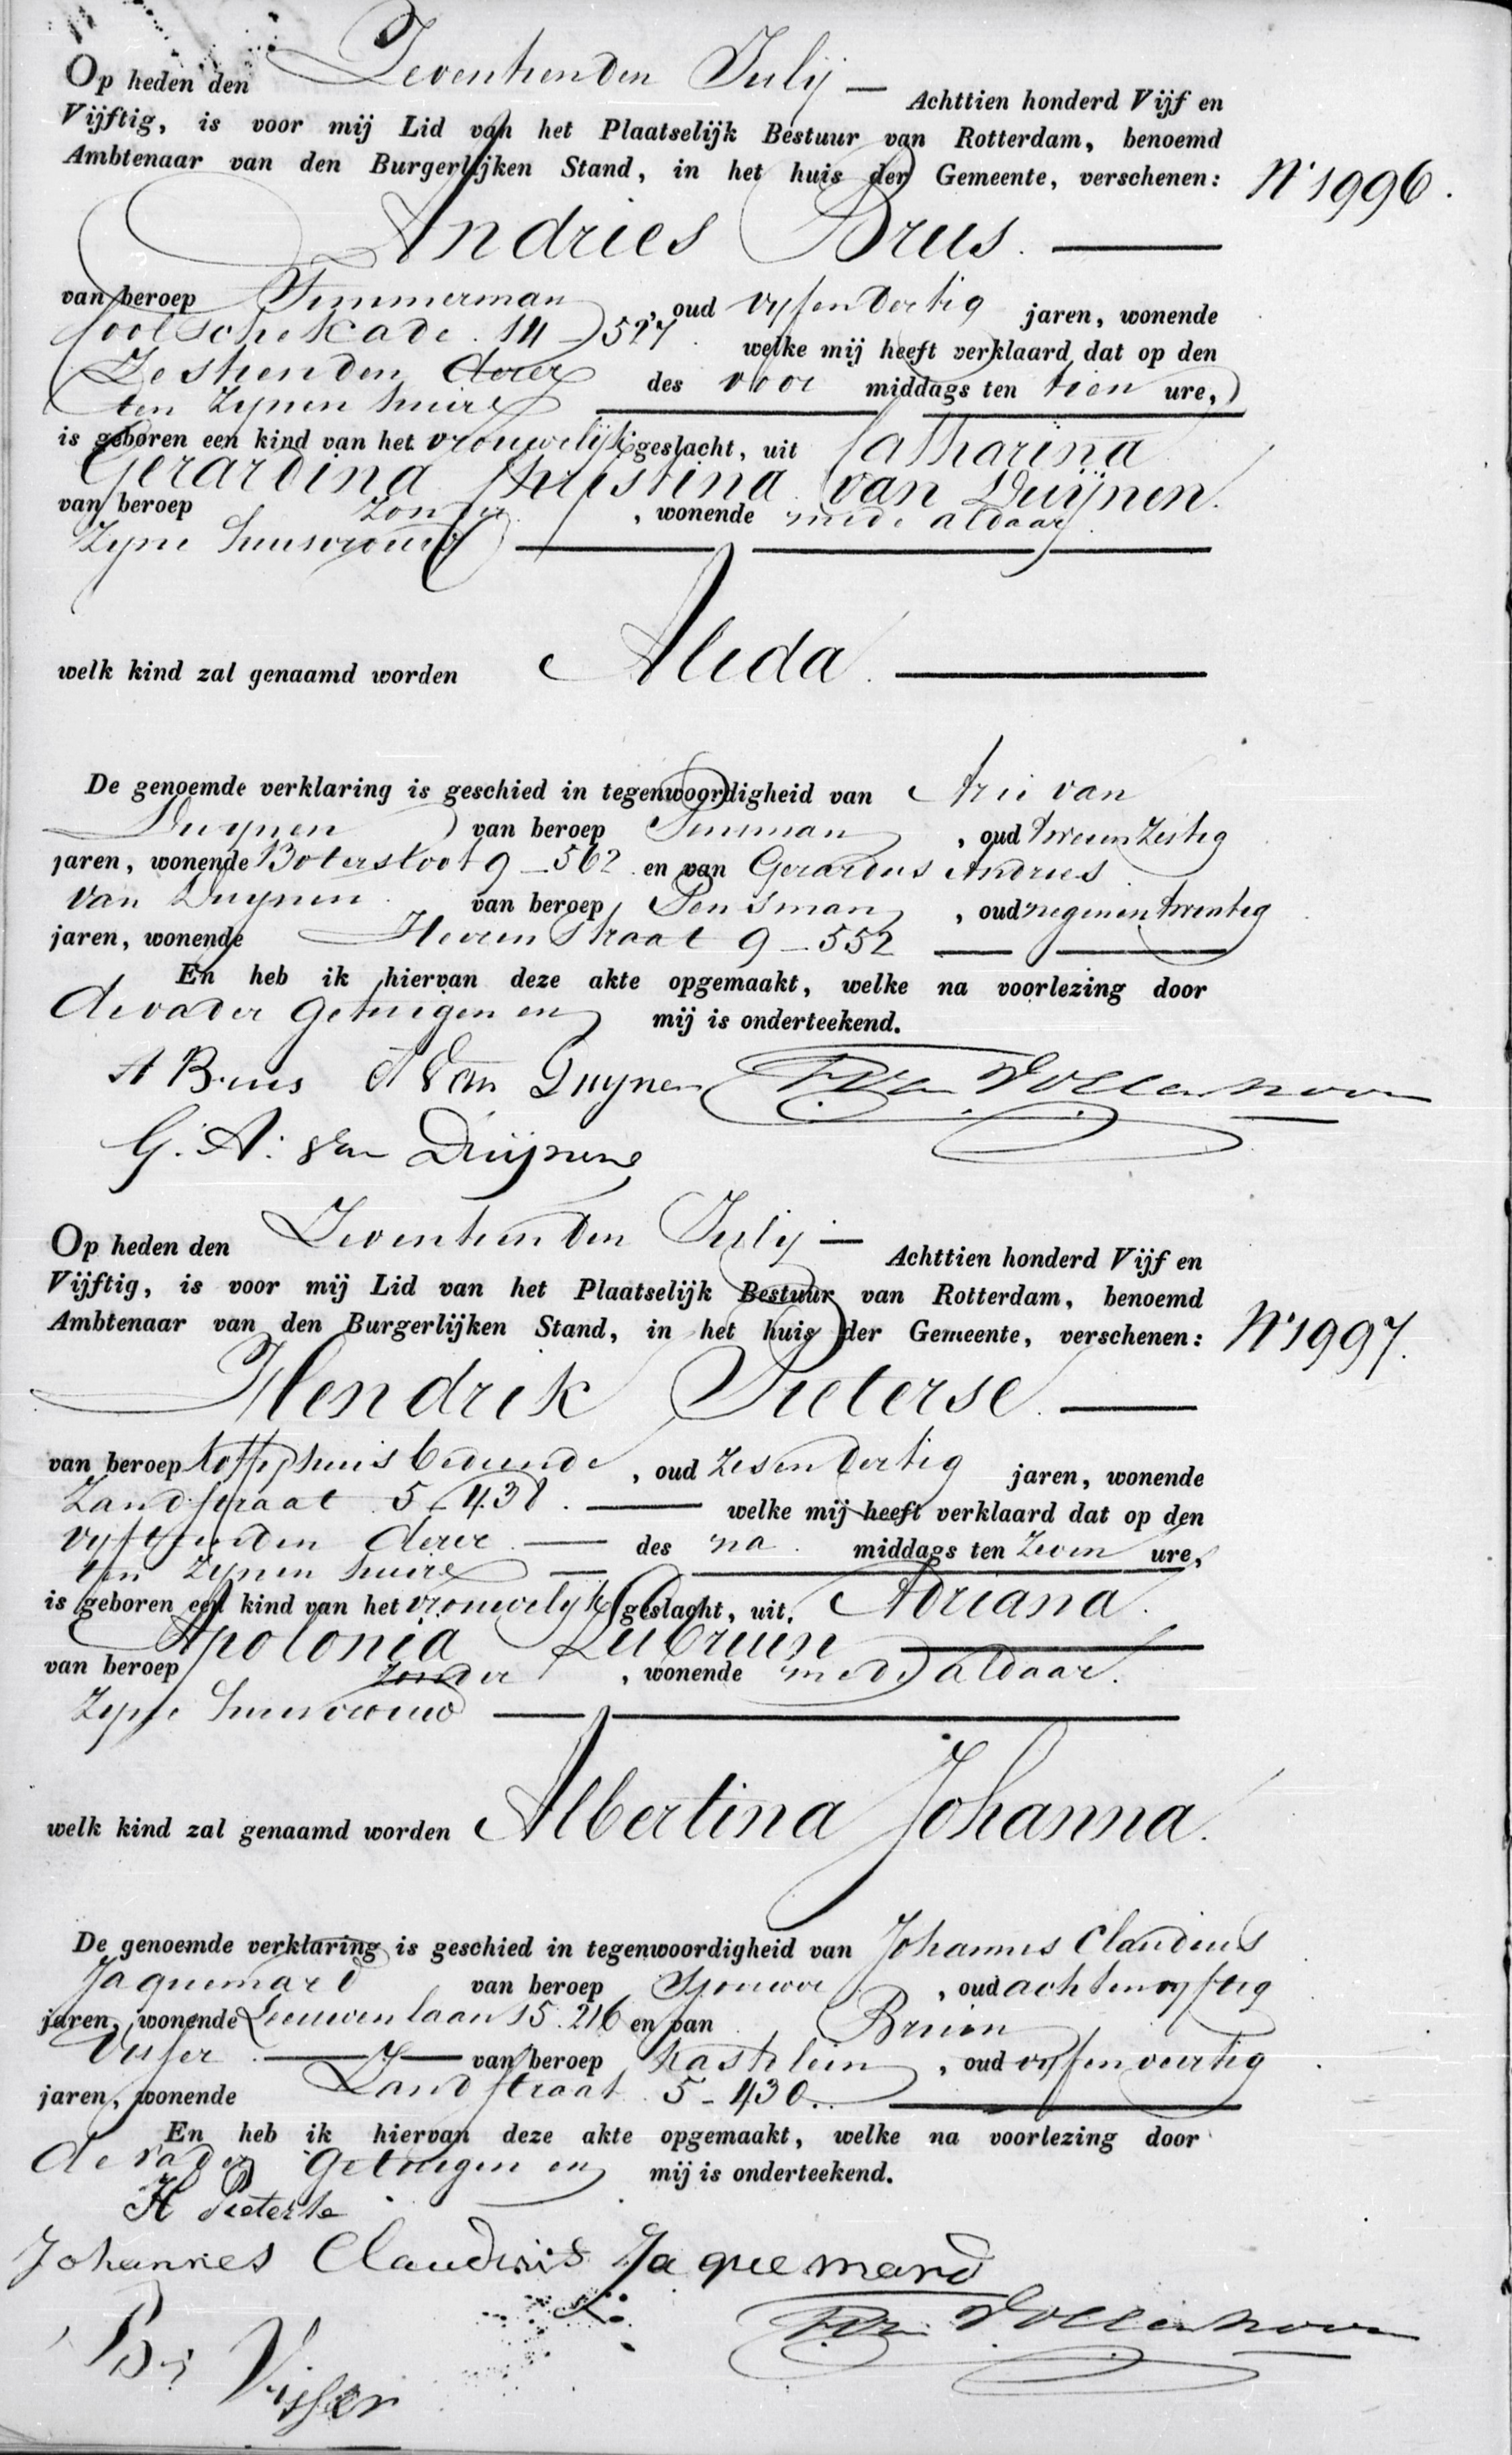 Op heden den Zeventienden Julij — Achttien honderd Vijf en
Vijftig, is voor mij Lid van het Plaatselijk Bestuur van Rotterdam, benoemd
Ambtenaar van den Burgerlijken Stand, in het huis der Gemeente, verschenen:
N° 1996.
Andries Brus.
van beroep Timmerman, oud vyfendertig jaren, wonende
Coolschekade 14-527. welke mij heeft verklaard dat op den
Zestienden dezer des voor middags ten tien ure,
ten zynen huize
is geboren een kind van het vrouwelijk geslacht, uit Catharina
Gerardina Christina van Duijnen.
van beroep zonder, wonende mede aldaar
zyne huisvrouw
welk kind zal genaamd worden Alida.
De genoemde verklaring is geschied in tegenwoordigheid van Arie van
Duynen van beroep, oud tweeenzestig
jaren, wonende Botersloot 9-562 en van Gerardus Andries
van Duynen van beroep Pensman, oud negenentwentig
jaren, wonende Heerenstraat 9-552
En heb ik hiervan deze akte opgemaakt, welke na voorlezing door
de vader getuigen en mij is onderteekend.
A Brus A Van Duynen
G. A. van Duijnen
Op heden den Zeventienden Julij — Achttien honderd Vijf en
Vijftig, is voor mij Lid van het Plaatselijk Bestuur van Rotterdam, benoemd
Ambtenaar van den Burgerlijken Stand, in het huis der Gemeente, verschenen:
N° 1997.
Hendrik Pieterse.
van beroep koffijhuisbediende, oud zesendertig jaren, wonende
Zandstraat 5-438. welke mij heeft verklaard dat op den
vyftienden dezer des na middags ten zeven ure,
ten zynen huize
is geboren een kind van het vrouwelijk geslacht, uit Adriana
Apolonia Lubruin
van beroep zonder, wonende mede aldaar.
zyne huisvrouw
welk kind zal genaamd worden Albertina Johanna.
De genoemde verklaring is geschied in tegenwoordigheid van Johannes Claudius
Jaquemard van beroep Sjouwer, oud achtenvyftig
jaren, wonende Leeuwenlaan 15.216 en van Bruin
Visser van beroep kastelein, oud vyfenveertig
jaren, wonende Zandstraat 5-430.
En heb ik hiervan deze akte opgemaakt, welke na voorlezing door
de vader getuigen en mij is onderteekend.
H Pieterse
Johannes Claudius Jaquemard
Br Visser